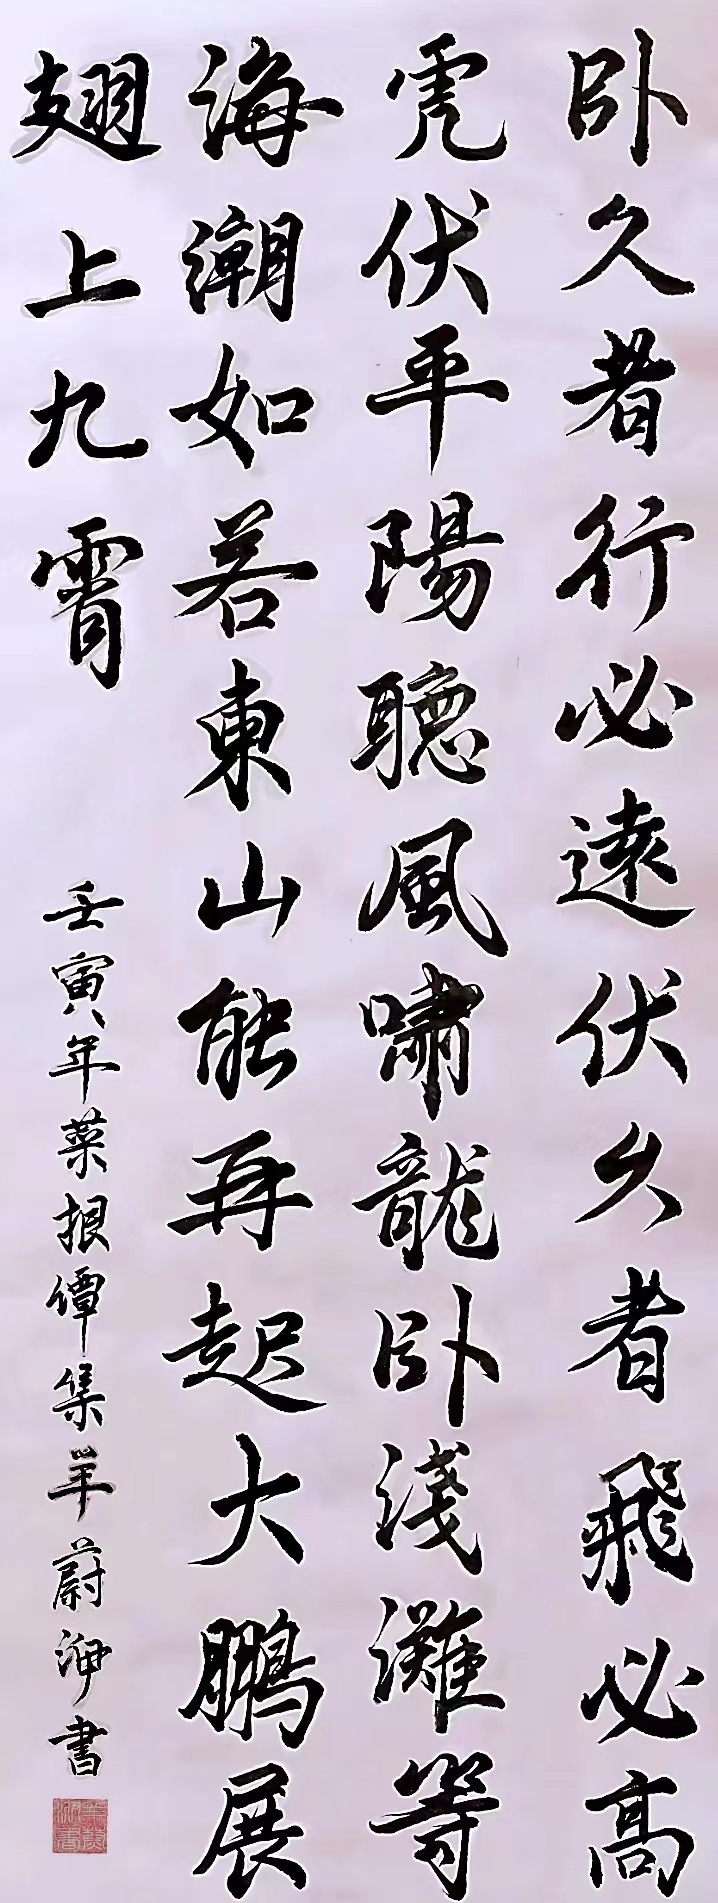 卧久者行必遠伏久者飛必高
虎伏平陽聽風嘯龍卧淺灘等
海潮如若東山能再起大鵬展
翅上九霄
壬寅年菜根譚集羊蔚洢書